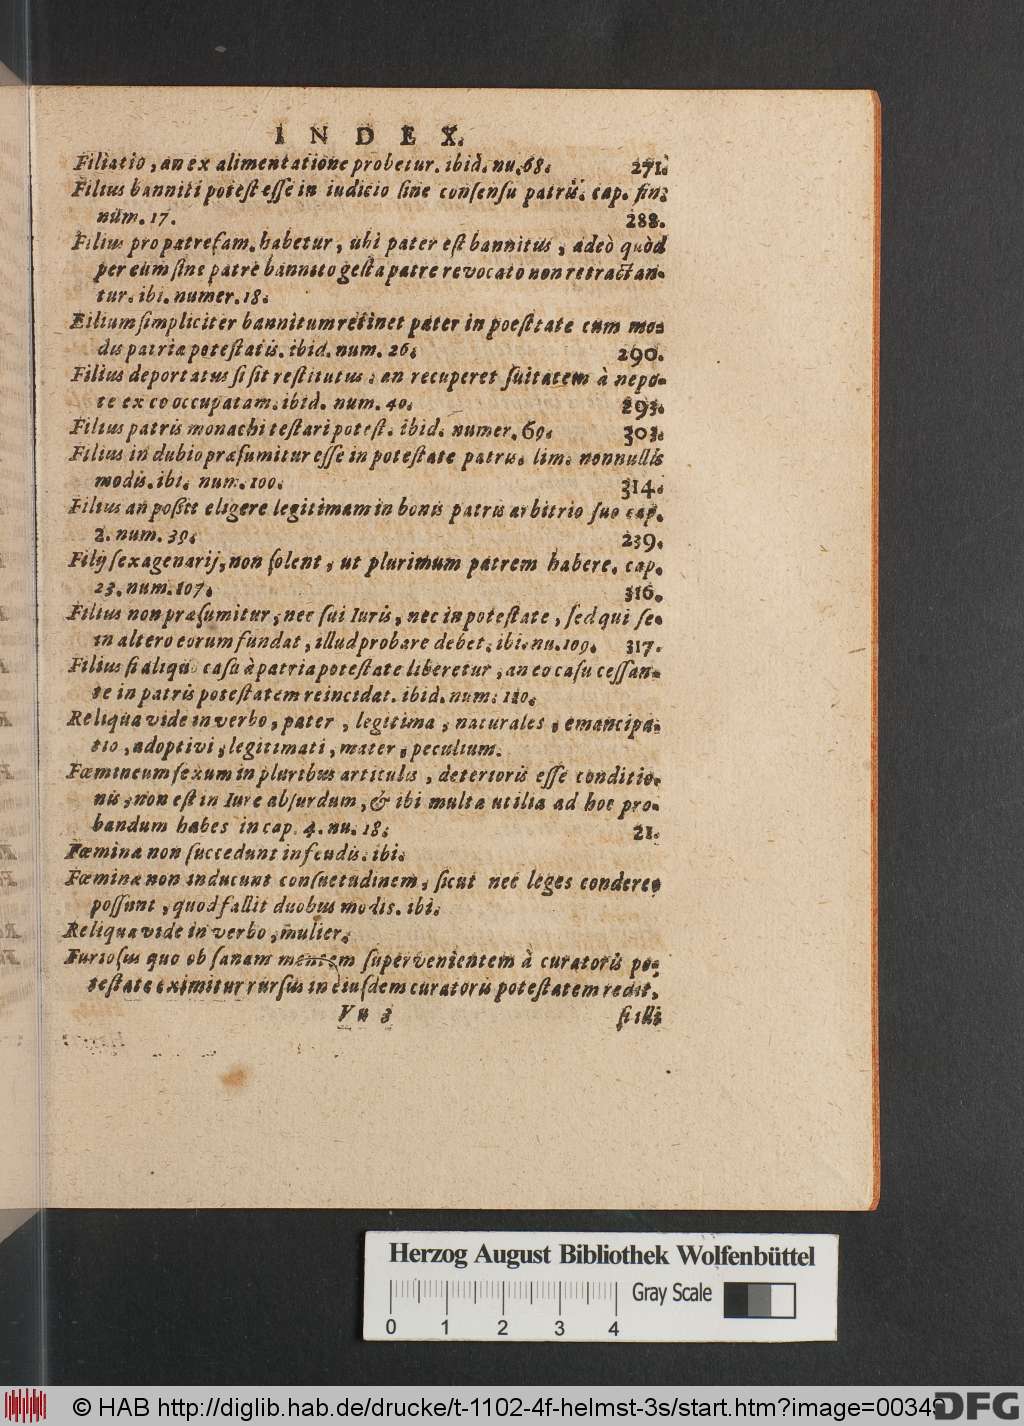 INDEX.
Filiatio, an ex alimentatione probetur. ibid. nu. 68. 271.
Filius banniti potest esse in iudicio sine consensu patris. cap. fin.
num. 17. 288.
Filius pro patrefam. habetur, ubi pater est bannitus, adeò quòd
per eum sine patre bannito gesta patre revocato non retractan-
tur. ibi. numer. 18.
Filium simpliciter bannitum retinet pater in poestitate cum mo-
dis patria potestatis. ibid. num. 26. 290.
Filius deportatus si sit restitutus, an recuperet suitatem à nepo-
te ex eo occupatam. ibid. num. 40. 293.
Filius patris monachi testari potest. ibid. numer. 69. 303.
Filius in dubio præsumitur esse in potestate patris. lim. nonnullis
modis. ibi. num. 100. 314.
Filius an possit eligere legitimam in bonis patris arbitrio suo cap.
2. num. 39. 239.
Filij sexagenarij, non solent, ut plurimum patrem habere. cap.
23. num. 107. 316.
Filius non præsumitur, nec sui Iuris, nec in potestate, sed qui se
in altero eorum fundat, illud probare debet. ibi. nu. 109. 317.
Filius si aliquo casu à patria potestate liberetur, an eo casu cessan-
te in patris potestatem reincidat. ibid. num. 110.
Reliqua vide in verbo, pater, legitima, naturales, emancipa-
tio, adoptivi, legitimati, mater, peculium.
Fœmineum sexum in pluribus articulis, deterioris esse conditio-
nis, non est in Iure absurdum, & ibi multa utilia ad hoc pro-
bandum habes in cap. 4. nu. 18. 21.
Fœminæ non succedunt in feudis. ibi.
Fœminæ non inducunt consuetudinem, sicut nec leges condere
possunt, quod fallit duobus modis. ibi.
Reliqua vide in verbo, mulier.
Furiosus quo ob sanam mentem supervenientem à curatoris po-
testate eximitur rursus in eiusdem curatoris potestatem redit,
Vu 3 si illi
Herzog August Bibliothek Wolfenbüttel
Gray Scale
0 1 2 3 4
© HAB http://diglib.hab.de/drucke/t-1102-4f-helmst-3s/start.htm?image=00349
DFG